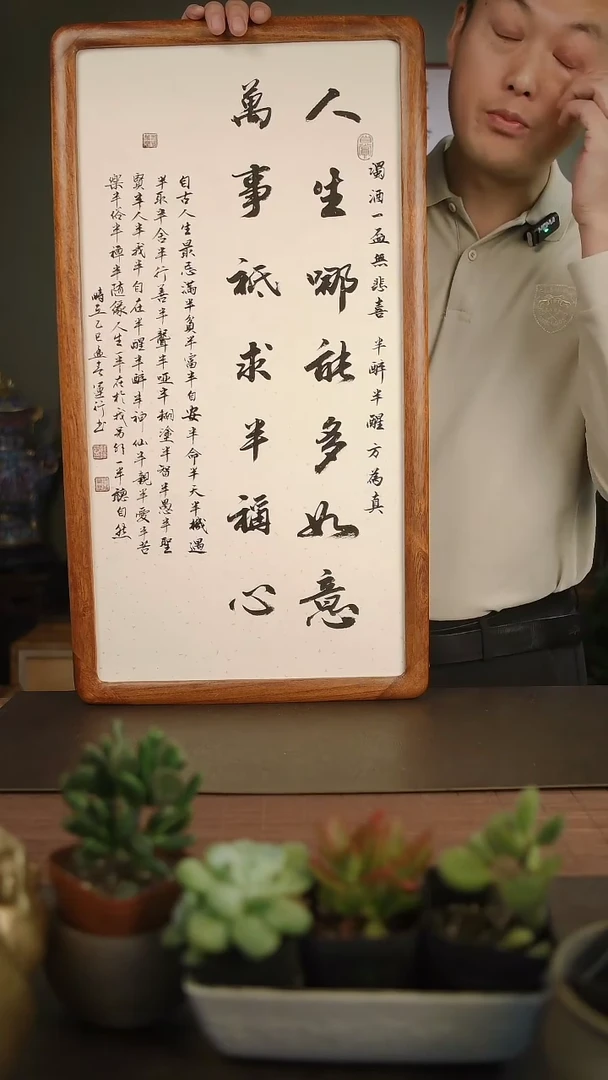 濁酒一盃無悲喜 半醉半醒方為真
人生哪能多如意
萬事祗求半稱心
自古人生最忌滿半貧半富半自安半命半天半機遇
半取半舍半行善半聾半啞半糊塗半智半愚半聖
賢半人半我半自在半醒半醉半神仙半親半愛半苦
樂半俗半禪半隨緣人生一半在於我另外一半聽自然
時在乙巳春书